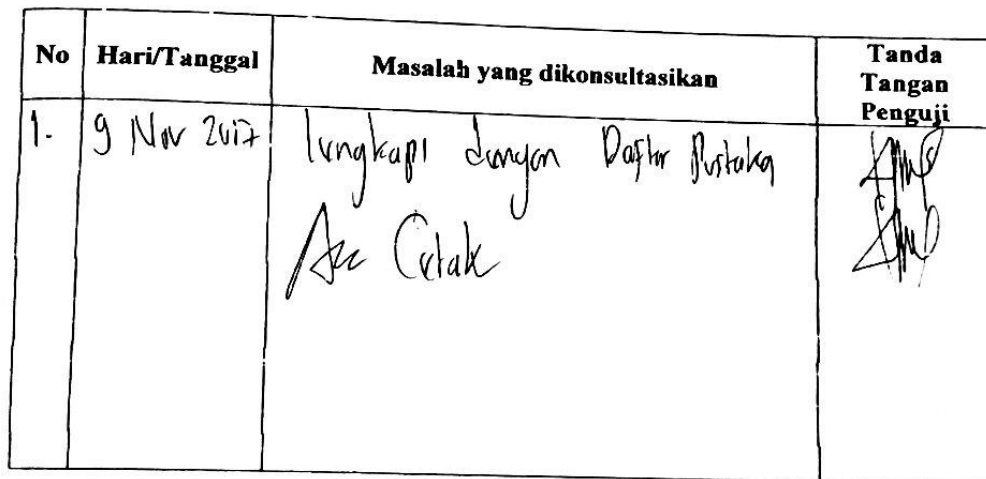 No Hari/Tanggal Masalah yang dikonsultasikan Tanda
Tangan
Penguji
1. 9 Nov 2017 lengkapi dengan Daftar Pustaka
Acc Cetak